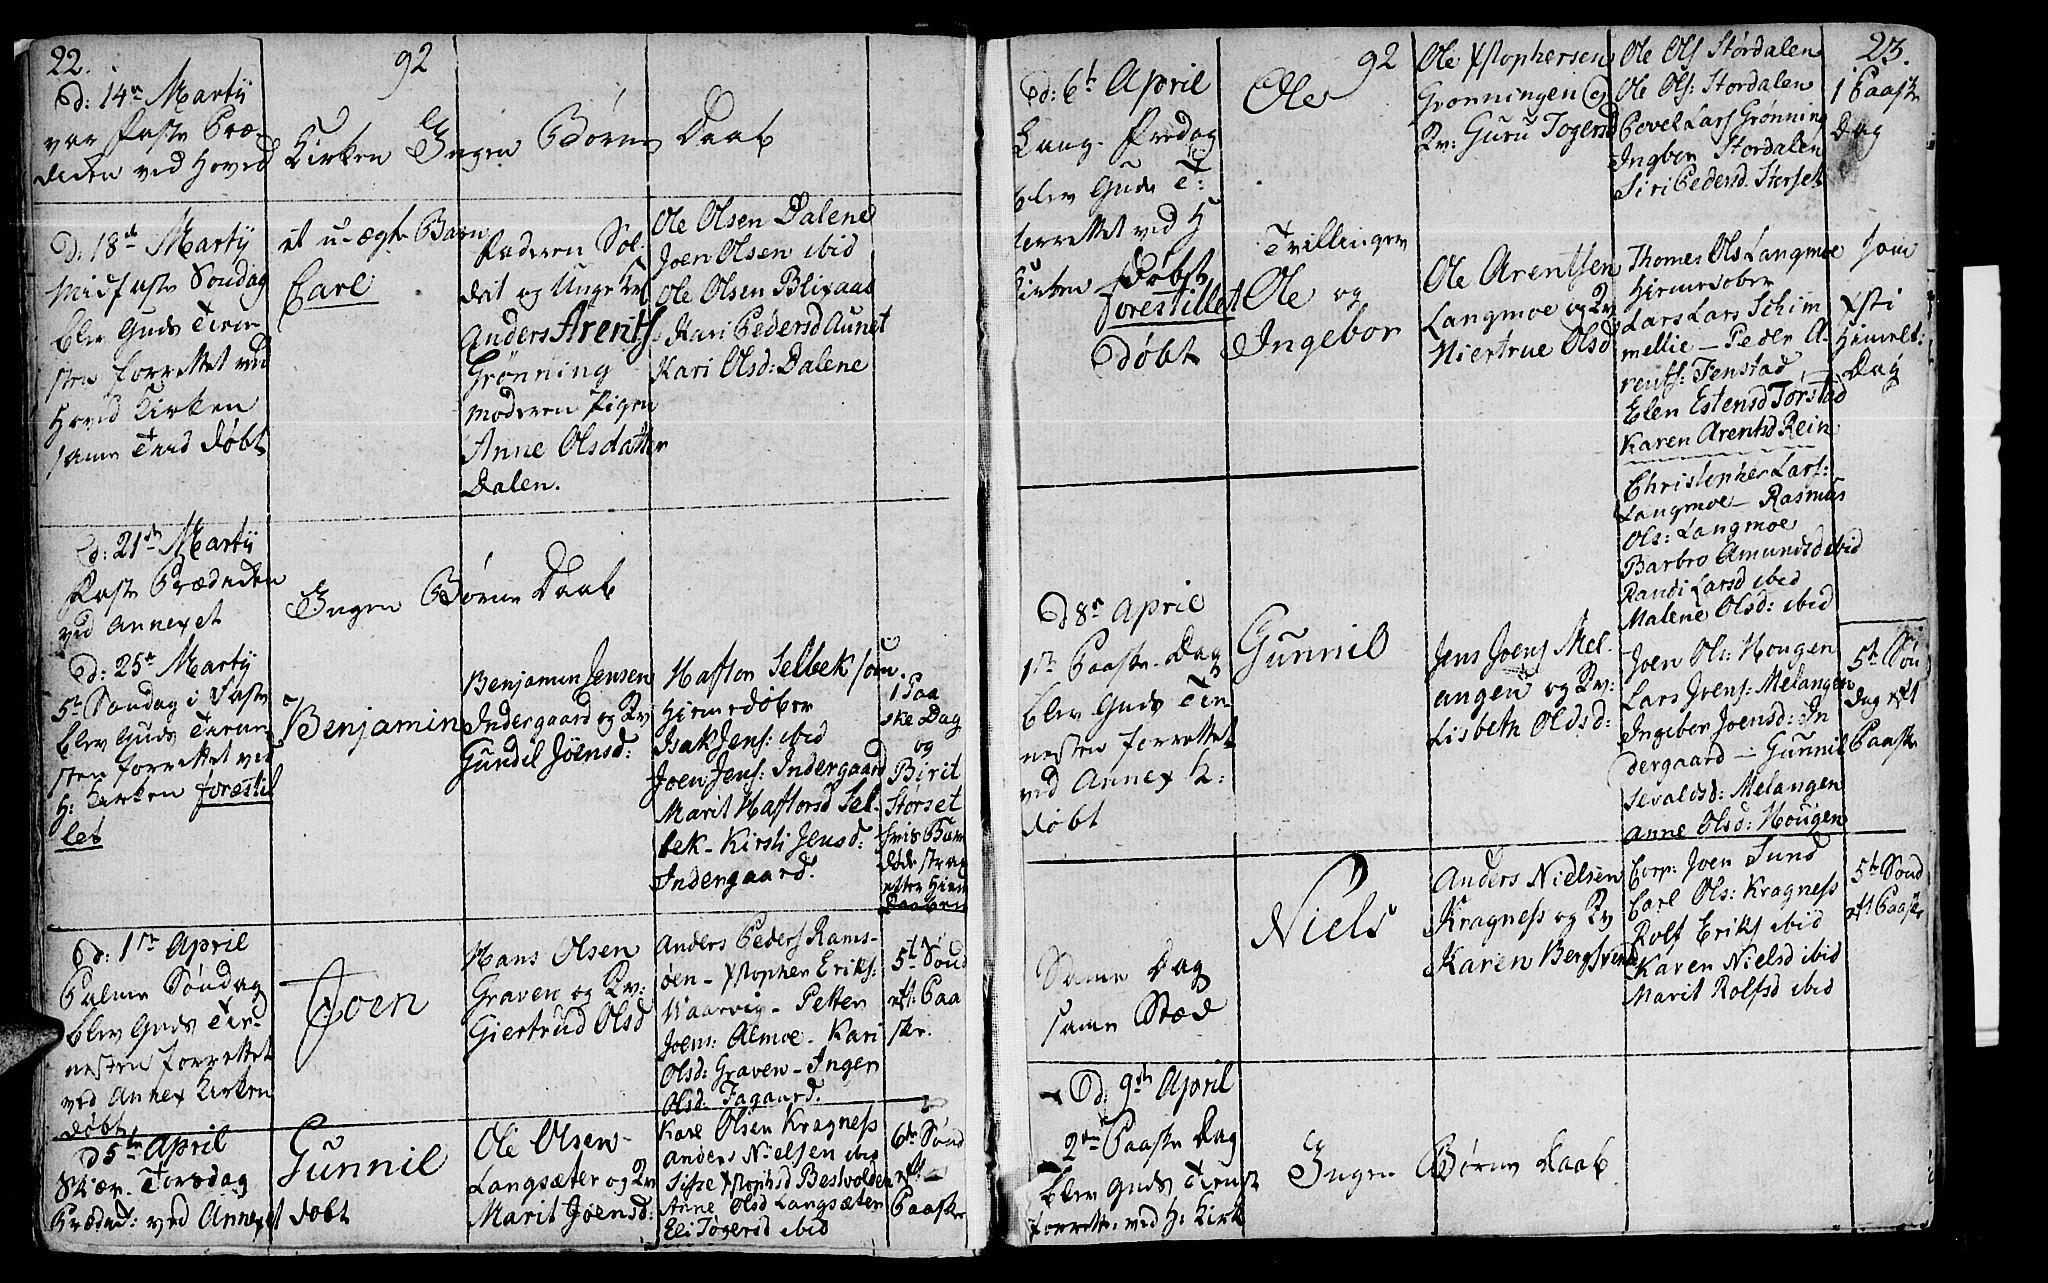 22.
92
D: 14de Martij
var Faste Præ-
diken ved Hoved Kirken Ingen Børne Daab
D: 18de Martij
Midfaste Søndag
blev Guds Tiene-
sten forrettet ved
Hoved Kirken
samme Tiid døbt
et u-ægte Barn
Carl
Faderen Sol-
dat og Unge Karl
Anders Arentss
Grønning
Moderen Pigen
Anne Olsdatter
Dalen.
Ole Olsen Dalene
Joen Olsen ibid
Ole Olsen Blixaas
Kari Pedersd Aunet
Kari Olsd: Dalene
d: 21de Martij
Faste Prædiken
ved Annexet
Ingen Børne Daab
D: 25de Martij
5te Søndag i Faste
blev Guds Tiene-
sten forrettet ved
H: Kirken forestil
let
Benjamin
Benjamin Jensen
Indergaard og Kv
Gundil Joensd:
Haftor Selbek som
Hiemedøber
Isak Jens: ibid
Joen Jens: Indergaard
Marit Haftorsd Sel-
bek - Kirsti Jensd:
Indergaard.
1 Paa
ske Dag
og
Birit
Størset
hvis Barn
døde strax
efter Hiem
Daaben
D: 1ste April
Palme Søndag
blev Guds Tie-
nesten forrettet
ved Annex Kirken
døbt
Joen
Hans Olsen
Graven og Kv:
Giertrud Olsd
Anders Peders Rams-
øen - Xstopher Eriks:
Waarvig - Petter
Joens: Almoe - Kari
Olsd: Graven - Inger
Olsd: Fagaard.
5te Sønd
eft: Paa
ske.
D 5te April
Skier Torsdag
Prædik: ved Annexet
Gunnil
døbt
Ole Olsen
Langsæter og Kv
Marit Joensd:
Karl Olsen Kragness
Anders Nielsen ibid
Sisse Xstophsd Bestvolden
Anne Olsd Langsæter
Eli Togersd ibid
6te Sønd
eft
Paaske
23.
92
D: 6te April
Lang-Fredag
blev Guds T:
forrettet ved H
Kirken Døbt
Ole
Ole Xstophersen
Grønningen og
Kv: Guru Togersd
Ole Ols Stórdalen
Ole Ols: Stordalen
Povel Lars Grønning
Ingber Stordalen
Siri Pedersd. Størset
1 Paaske
Dag
forestillet
Døbt
Trillinger
Ole og
Ingebor
Ole Arentsen
Langmoe og Kv
Hiertrue Olsd
Thomes Ols Langmoe
Hiemedøber
Lars Lars Schim
mellie - Peder A-
rents: Fenstad
Elen Estensd Torstad
Karen Arentsd Rein
Christopher Lars:
Langmoe - Rasmus
Ols: Langmoe
Barbro Amundsd ibid
Randi Larsd ibid
Malene Olsd: ibid
som
Xsti
Himelf:
Dag
D 8de April
1ste Paaske Dag
blev Guds Tie-
nesten forrettet
ved Annex K:
døbt
Gunnil
Jens Joens Mel-
angen og Kv:
Lisbeth Oldsd:
Joen Ols: Hougen
Lars Joens: Melangen
Ingeber Joensd: In
dergaard - Gunnil
Sevaldsd: Melangen
Anne Olsd: Hougen
5te Søn
dag eft
Paaske
Samme Dag
samme Stæd
Niels
Anders Nielsen
Kragness og Kv
Karen Bergsvend
Corp: Joen Sund
Carl Ols: Kragness
Rolf Eriks ibid
Karen Nielsd ibid
Marit Rolfsd ibid
5te Sønd
eft Paaske
D: 9de April
2den Paaske Dag
blev Guds Tienest
forrettet ved H: Kirk
Ingen Børne Daab